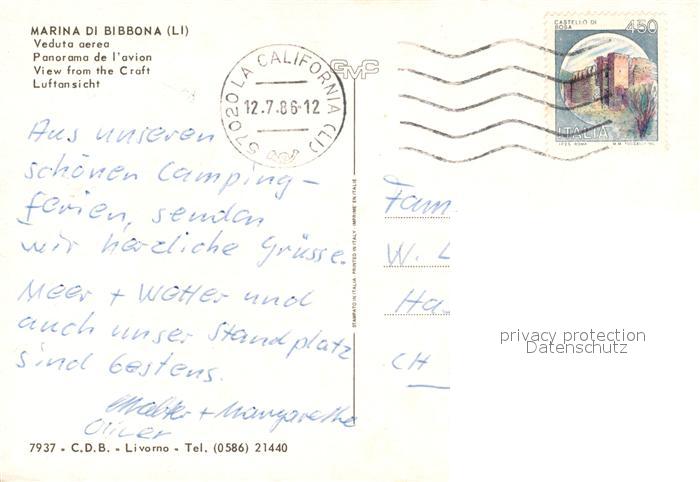 MARINA DI BIBBONA (LI)
Veduta aerea
Panorama de l'avion
View from the Craft
Luftansicht
GMP
57020 LA CALIFORNIA (LI)
12.7.86-12
CASTELLO DI
BOSA
450
ITALIA
I.P.Z.S. ROMA
Aus unseren
schönen Camping-
ferien, senden
wir herzliche Grüsse.
Meer + Wetter und
auch unser Standplatz
sind bestens.
Walter + Margarethe
Oliver
7937 - C.D.B. - Livorno - Tel. (0586) 21440
STAMPATO IN ITALIA - PRINTED IN ITALY - IMPRIMÉ EN ITALIE
Fam.
W. L
Ha
CH
privacy protection
Datenschutz